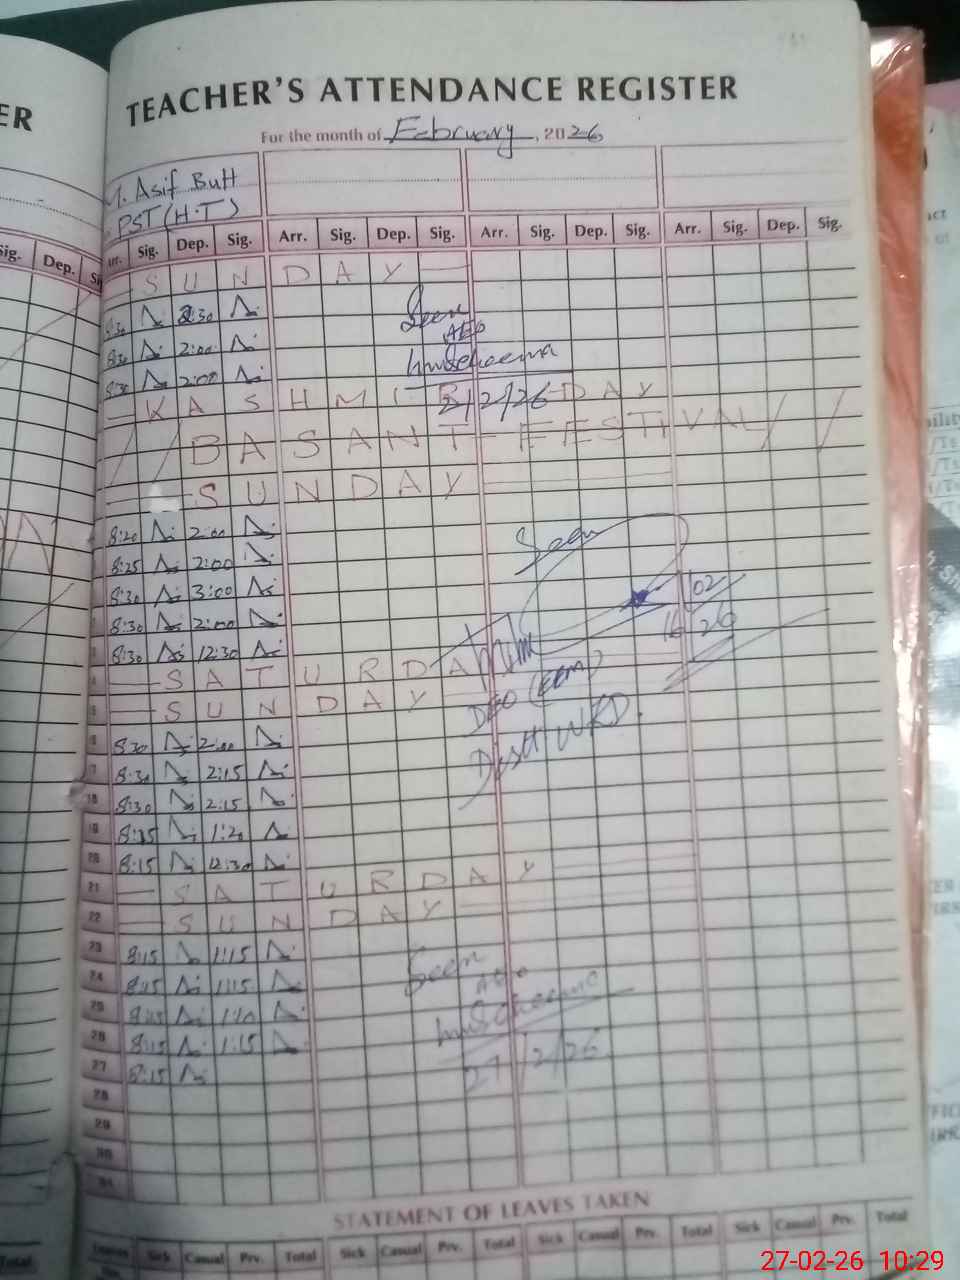 TEACHER'S ATTENDANCE REGISTER
For the month of February, 2026
M. Asif Butt
PST (H.T)
Arr. Sig. Dep. Sig. Arr. Sig. Dep. Sig. Arr. Sig. Dep. Sig. Arr. Sig. Dep. Sig.
SUNDAY
8:30 2:30
Seen
8:30 2:00
AEO
8:30 2:00
KASHMIR DAY
2/2/26
BASANT FESTIVAL
SUNDAY
8:20 2:00
Seen
8:25 2:00
8:30 3:00
16/02/26
8:30 2:00
8:30 12:30
SATURDA
SUNDAY
DEO
8:30 2:00
Distt WRD.
8:30 2:15
18 8:30 2:15
19 8:15 1:20
20 8:15 12:30
21 SATURDAY
22 SUNDAY
23 8:15 1:15
Seen
24 8:15 1:15
AEO
25 8:15 1:10
26 8:15 1:15
27 8:15
27/2/26
28
29
30
31
STATEMENT OF LEAVES TAKEN
Leaves Sick Casual Prv. Total Sick Casual Prv. Total Sick Casual Prv. Total Sick Casual Prv. Total
ER
Sig. Dep.
Total
27-02-26 10:29